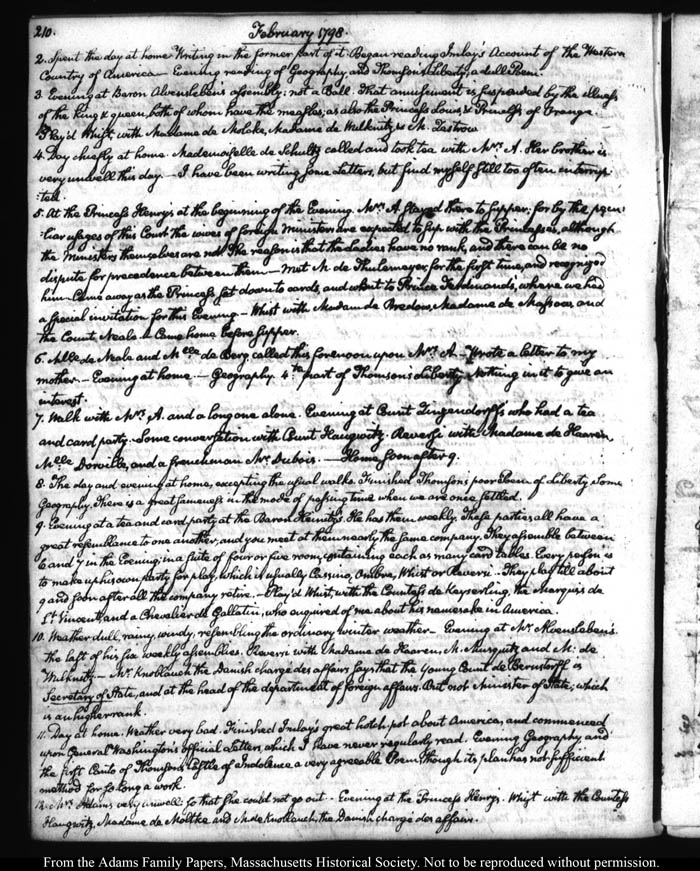 210.
February 1798.
2. Spent the day at home Writing in the former part of it. Began reading Imlay's Account of the Western
Country of America — Evening reading of Geography, and Thomson's Liberty, a dull Poem.
3. Evening at Baron Alvensleben's assembly; not a Ball. That amusement is suspended by the illness
of the king & queen, both of whom have the measles, as also the Princess Louis, & Princess of Orange.
Play'd Whist with Madame de Moltke, Madame de Wilknitz & M.
4. Day chiefly at home. Mademoiselle de Schultz called and took tea with Mrs. A. Her brother is
very unwell this day. — I have been writing some letters, but find myself still too often interrup-
:ted.
5. At the Princess Henry's at the beginning of the Evening. Mrs. A. stayed there to supper; for by the pecu-
:liar usages of this Court the wives of foreign Ministers are expected to sup with the Princesses, although
the Ministers themselves are not. The reason is that the ladies have no rank, and there can be no
dispute for precedence between them — Met M. de Thulemeyer for the first time, and recognized
him — Came away as the Princess sat down to cards, and went to Prince Ferdinand's, where we had
a special invitation for this Evening — Whist with Madame de Bredow, Madame de Massow, and
the Count, Neale. — Came home before supper.
6. Mlle de Neale and Mlle de Berg called this forenoon upon Mrs. A. — Wrote a letter to my
mother. — Evening at home. — Geography. 4th part of Thomson's Liberty. Nothing in it to give an
interest.
7. Walk with Mrs. A. and a long one alone. Evening at Count Zinzendorff's who had a tea
and card party. Some conversation with Count Haugwitz. Reversi with Madame de Haaren,
Mlle Dorville, and a frenchman Mr. Dubois. — Home soon after 9.
8. The day and evening at home, excepting the usual walks. Finished Thomson's poor Poem of Liberty. Some
Geography. There is a great sameness in the mode of passing time when we are once settled.
9. Evening at a tea and card party at the Baron Heinitz's. He has them weekly. These parties all have a
great resemblance to one another, and you meet at them nearly the same company. They assemble between
6 and 7 in the Evening; in a suite of four or five rooms, containing each as many card tables. Every person is
to make up his own party for play, which is usually Cassino, Ombre, Whist or Reversi. — They play till about
9 and soon after all the company retire. — Play'd Whist, with the Countess de Keyserling, the Marquis de
St. Vincent, and a Chevalier de Gallatin, who enquired of me about his namesake in America.
10. Weather dull, rainy, windy, resembling the ordinary winter weather — Evening at Mr. Alvensleben's
the last of his six weekly assemblies. Reversi with Madame de Haaren, M. and M. de
Wilknitz — Mr. Knoblauch the Danish chargé des affaires says that the young Count de Bernstorff is
Secretary of State, and at the head of the department of foreign affairs. But not Minister of State; which
is an higher rank.
11. Day at home. Weather very bad. Finished Imlay's great hotch-pot about America, and commenced
upon General Washington's official letters, which I have never regularly read. Evening Geography, and
the first Canto of Thomson's Castle of Indolence a very agreeable Poem, though its plan has not sufficient
method for so long a work.
12. Mrs. Adams very unwell: so that she could not go out — Evening at the Princess Henry's. Whist with the Countess
Haugwitz, Madame de Moltke and M. de Knoblauch, the Danish chargé des affaires.
From the Adams Family Papers, Massachusetts Historical Society. Not to be reproduced without permission.